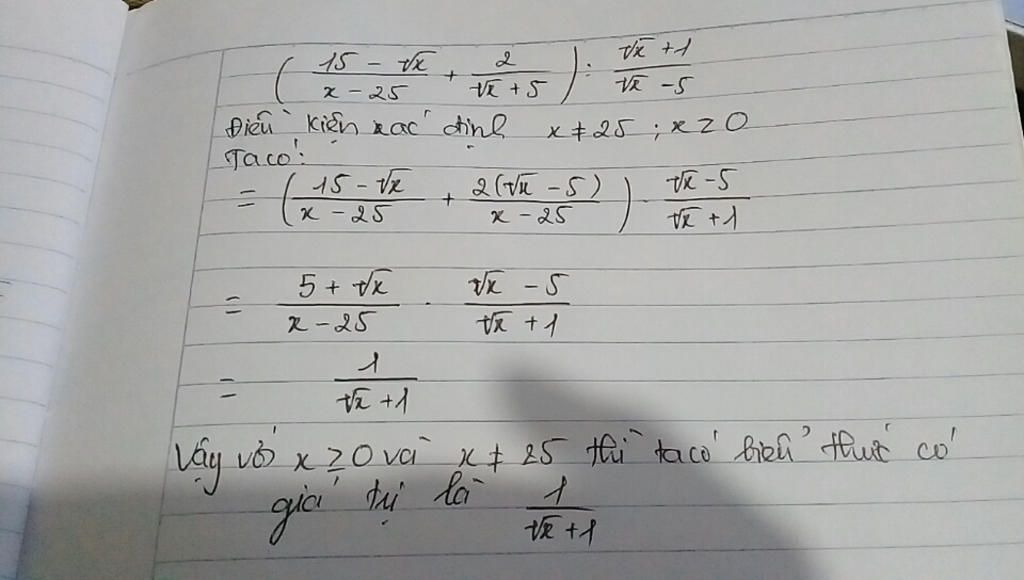 ( (15 - √x)/(x - 25) + 2/(√x + 5) ) : (√x + 1)/(√x - 5)
Điều kiện xác định x ≠ 25 ; x ≥ 0
Ta có:
= ( (15 - √x)/(x - 25) + 2(√x - 5)/(x - 25) ) · (√x - 5)/(√x + 1)
= (5 + √x)/(x - 25) · (√x - 5)/(√x + 1)
= 1/(√x + 1)
Vậy với x ≥ 0 và x ≠ 25 thì ta có biểu thức có
giá trị là 1/(√x + 1)